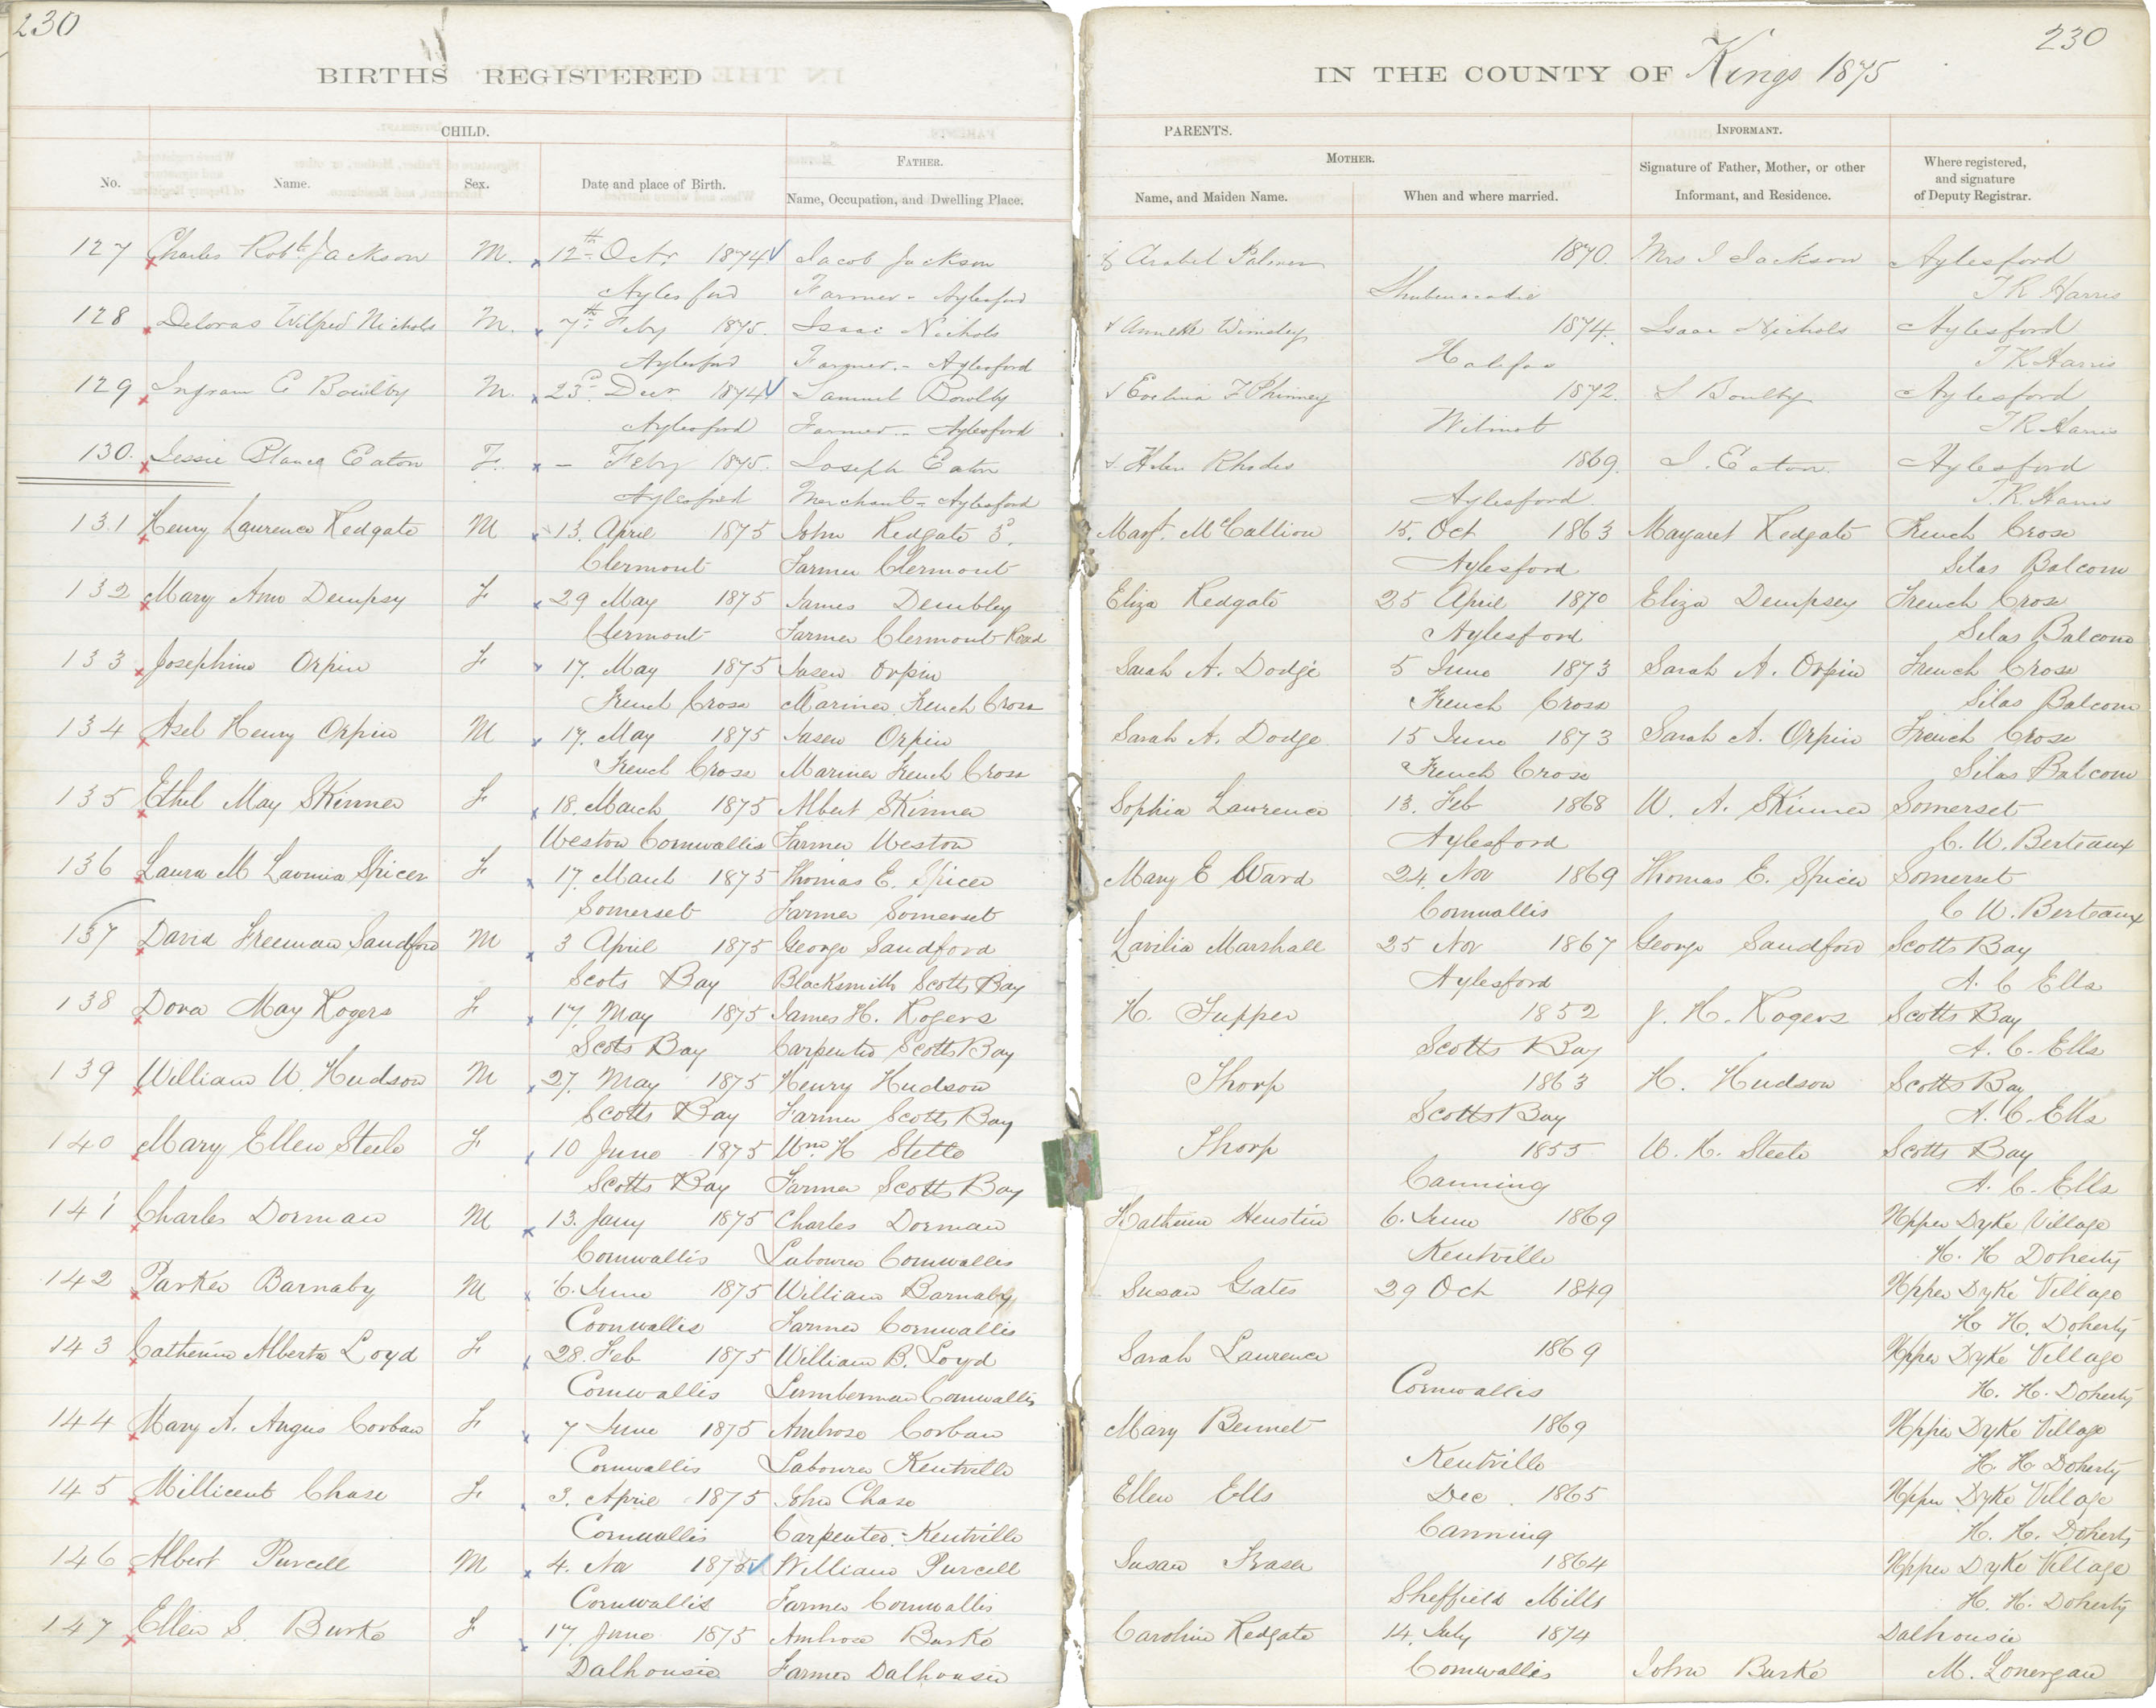 230
230
BIRTHS REGISTERED
IN THE COUNTY OF Kings 1875
CHILD.
PARENTS.
INFORMANT.
No.
Name.
Sex.
Date and place of Birth.
FATHER.
Name, Occupation, and Dwelling Place.
MOTHER.
Name, and Maiden Name.
When and where married.
Signature of Father, Mother, or other
Informant, and Residence.
Where registered,
and signature
of Deputy Registrar.
127 Charles Robt. Jackson M. 12th Octr. 1874 Jacob Jackson & Arabel Palmer 1870. Mrs J Jackson Aylesford
Aylesford Farmer - Aylesford Shubenacadie T R Harris
128 Deloras Wilfred Nichols M. 7th Feby 1875. Isaac Nichols & Annette 1874. Isaac Nichols Aylesford
Aylesford Farmer. - Aylesford Halifax T R Harris
129 Ingram C Bowlby M. 23d Decr. 1874 Samuel Bowlby & Evelina F Phinney 1872. S Bowlby Aylesford
Aylesford Farmer - Aylesford Wilmot T R Harris
130. Jessie Eaton F. - Feby 1875. Joseph Eaton & Helen Rhodes 1869. J. Eaton. Aylesford
Aylesford Merchant - Aylesford Aylesford T. R. Harris
131 Henry Laurence Redgate M 13. April 1875 John Redgate 3d. Margt. McCallion 15. Oct 1863 Margaret Redgate French Cross
Clermont Farmer Clermont Aylesford Silas Balcom
132 Mary Ann Dempsy F 29 May 1875 James Dembley Eliza Redgate 25 April 1870 Eliza Dempsey French Cross
Clermont Farmer Clermont Road Aylesford Silas Balcom
133 Josephine Orpin F 17. May 1875 Jasen Orpin Sarah A. Dodge 5 June 1873 Sarah A. Orpin French Cross
French Cross Mariner French Cross French Cross Silas Balcom
134 Asel Henry Orpin M 17. May 1875 Jasen Orpin Sarah A. Dodge 15 June 1873 Sarah A. Orpin French Cross
French Cross Mariner French Cross French Cross Silas Balcom
135 Ethel May Skinner F 18. March 1875 Albert Skinner Sophia Lawrence 13. Feb 1868 W. A. Skinner Somerset
Weston Cornwallis Farmer Weston Aylesford C. W. Berteaux
136 Laura M Lavinia Spicer F 17. March 1875 Thomas E. Spicer Mary E Ward 24. Nov 1869 Thomas E. Spicer Somerset
Somerset Farmer Somerset Cornwallis C W. Berteaux
137 David Freeman Sandford M 3 April 1875 George Sandford Lavilia Marshall 25 Nov 1867 George Sandford Scotts Bay
Scots Bay Blacksmith Scotts Bay Aylesford A. C Ells
138 Dora May Rogers F 17. May 1875 James H. Rogers H. Tupper 1852 J. H. Rogers Scotts Bay
Scots Bay Carpenter Scotts Bay Scotts Bay A. C. Ells
139 William W. Hudson M 27. May 1875 Henry Hudson Thorp 1863 H. Hudson Scotts Bay
Scotts Bay Farmer Scotts Bay Scotts Bay A. C. Ells
140 Mary Ellen Steele F 10 June 1875 Wm. H Stelle Thorp 1855 W. H. Steele Scotts Bay
Scotts Bay Farmer Scotts Bay Canning A. C. Ells
141 Charles Dorman M 13. Jany 1875 Charles Dorman Katherine Heustin 6. June 1869 Upper Dyke Village
Cornwallis Labourer Cornwallis Kentville H. H Doherty
142 Parker Barnaby M 6. June 1875 William Barnaby Susan Gates 29 Oct 1849 Upper Dyke Village
Cornwallis Farmer Cornwallis H H. Doherty
143 Catherine Alberta Loyd F 28. Feb 1875 William B. Loyd Sarah Laurence 1869 Upper Dyke Village
Cornwallis Lumberman Cornwallis Cornwallis H. H. Doherty
144 Mary A. Angus Corban F 7 June 1875 Ambrose Corban Mary Bennet 1869 Upper Dyke Village
Cornwallis Labourer Kentville Kentville H. H Doherty
145 Millicent Chase F 3. April 1875 John Chase Ellen Ells Dec. 1865 Upper Dyke Village
Cornwallis Carpenter - Kentville Canning H. H. Doherty
146 Albert Purcell M 4. Nov 1875 William Purcell Susan Fraser 1864 Upper Dyke Village
Cornwallis Farmer Cornwallis Sheffield Mills H. H. Doherty
147 Ellen S. Burke F 17. June 1875 Ambrose Burke Caroline Redgate 14. July 1874 Dalhousie
Dalhousie Farmer Dalhousie Cornwallis John Burke M. Lonergan